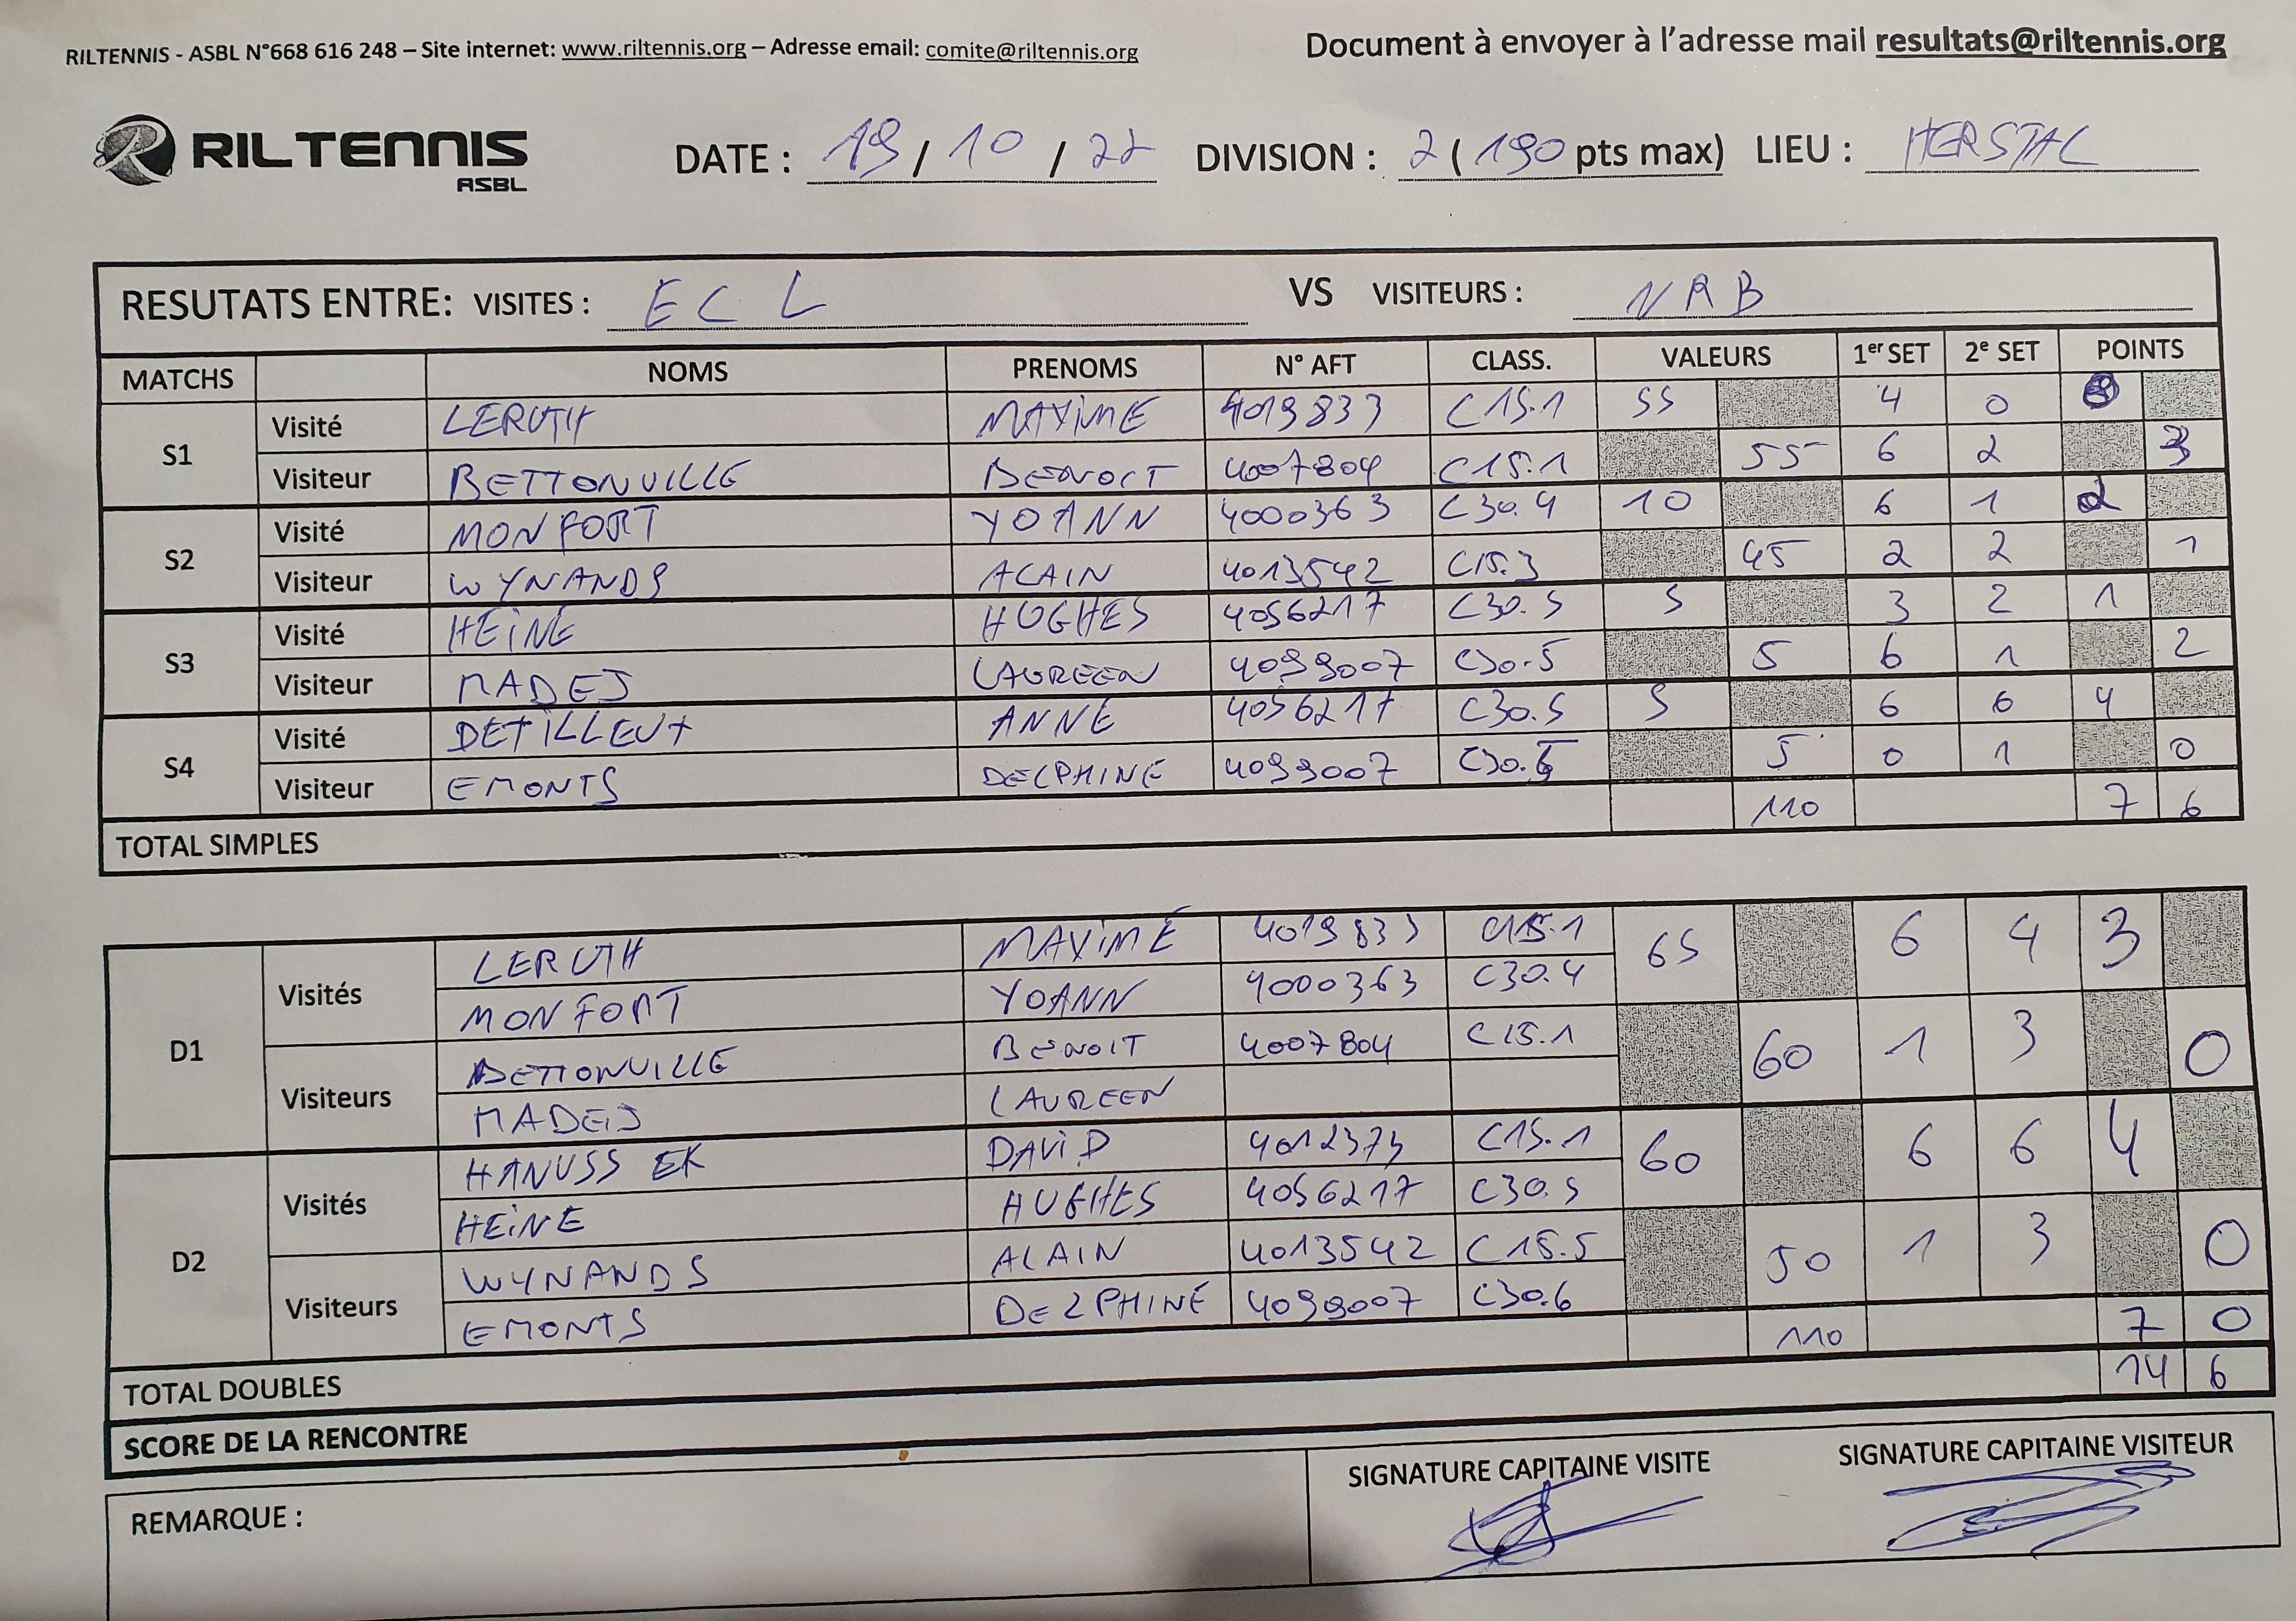 RILTENNIS - ASBL N°668 616 248 – Site internet: www.riltennis.org – Adresse email: comite@riltennis.org
Document à envoyer à l'adresse mail resultats@riltennis.org
RILTENNIS ASBL
DATE : 19 / 10 / 22 DIVISION : 2 ( 190 pts max) LIEU : HERSTAL
RESUTATS ENTRE: VISITES : ECL VS VISITEURS : NRB
MATCHS NOMS PRENOMS N° AFT CLASS. VALEURS 1er SET 2e SET POINTS
S1 Visité LERUTH MAXIME 4019833 C15.1 55 4 0
Visiteur BETTONVILLE BENOIT 4007804 C15.1 55 6 2 3
S2 Visité MONFORT YOANN 4000363 C30.4 10 6 1 2
Visiteur WYNANDS ALAIN 4013542 C15.3 45 2 2 1
S3 Visité HEINE HUGHES 4056217 C30.5 5 3 2 1
Visiteur MADEJ LAUREEN 4099007 C30.5 5 6 1 2
S4 Visité DETILLEUX ANNE 4056217 C30.5 5 6 6 4
Visiteur EMONTS DELPHINE 4099007 C30.6 5 0 1 0
TOTAL SIMPLES 110 7 6
D1 Visités LERUTH MAXIME 4019833 C15.1 65 6 4 3
MONFORT YOANN 4000363 C30.4
Visiteurs BETTONVILLE BENOIT 4007804 C15.1 60 1 3 0
MADEJ LAUREEN
D2 Visités HANUSSEK DAVID 4012373 C15.1 60 6 6 4
HEINE HUGHES 4056217 C30.5
Visiteurs WYNANDS ALAIN 4013542 C15.5 50 1 3 0
EMONTS DELPHINE 4099007 C30.6
TOTAL DOUBLES 110 7 0
SCORE DE LA RENCONTRE 14 6
REMARQUE :
SIGNATURE CAPITAINE VISITE
SIGNATURE CAPITAINE VISITEUR